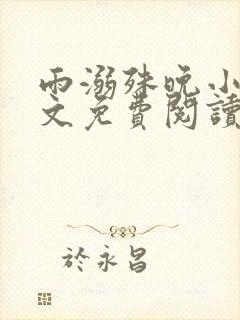 雨溺殊晚小
文免費閱讀
於永昌